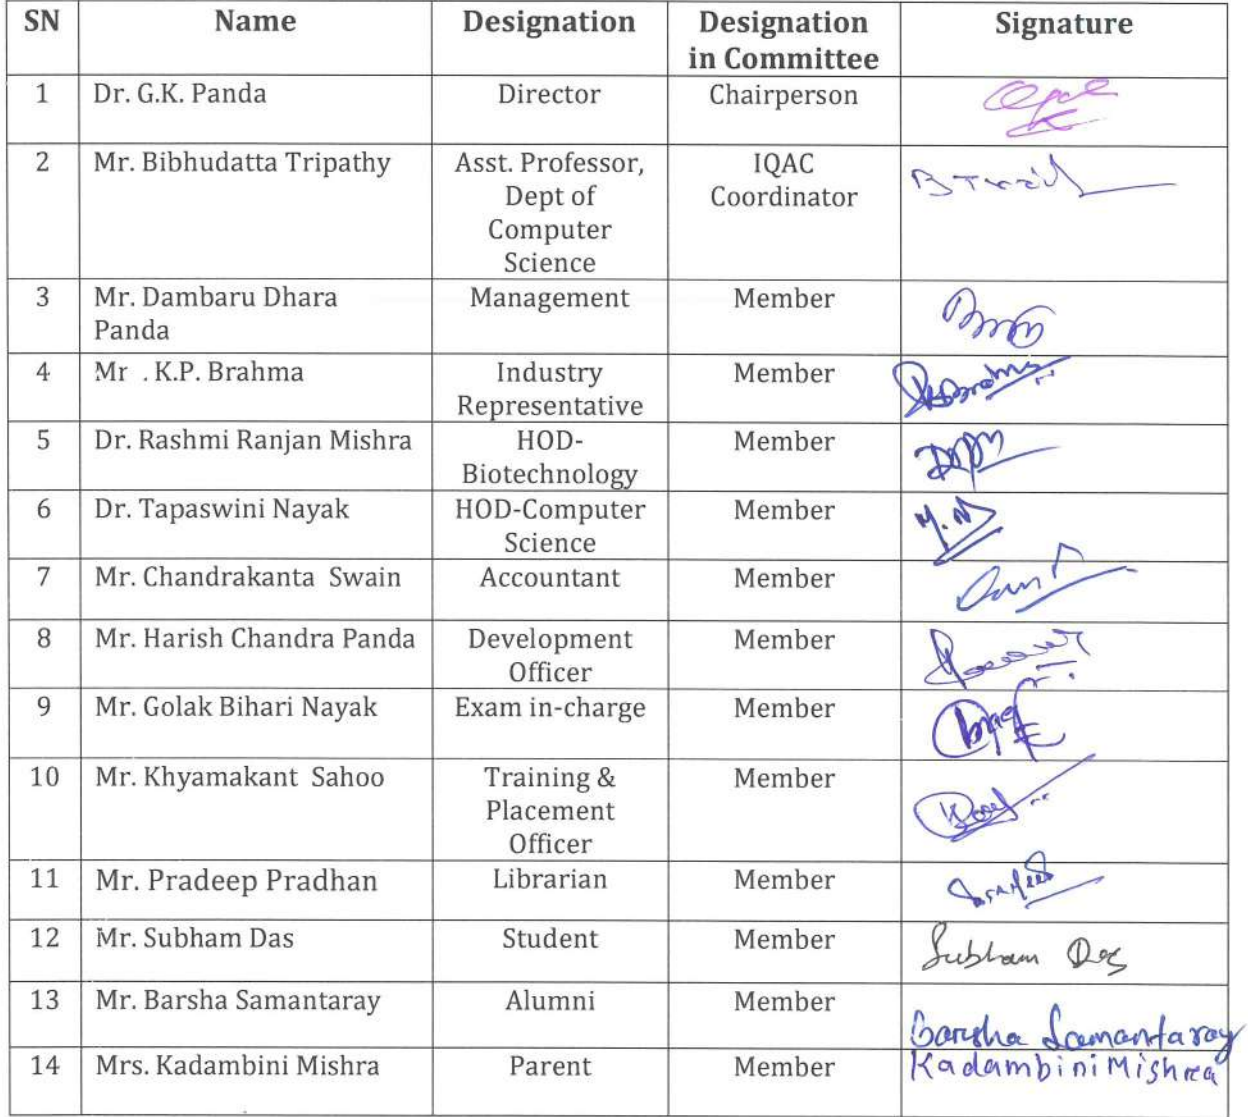 SN Name Designation Designation in Committee Signature
1 Dr. G.K. Panda Director Chairperson
2 Mr. Bibhudatta Tripathy Asst. Professor, Dept of Computer Science IQAC Coordinator
3 Mr. Dambaru Dhara Panda Management Member
4 Mr . K.P. Brahma Industry Representative Member
5 Dr. Rashmi Ranjan Mishra HOD-Biotechnology Member
6 Dr. Tapaswini Nayak HOD-Computer Science Member
7 Mr. Chandrakanta Swain Accountant Member
8 Mr. Harish Chandra Panda Development Officer Member
9 Mr. Golak Bihari Nayak Exam in-charge Member
10 Mr. Khyamakant Sahoo Training & Placement Officer Member
11 Mr. Pradeep Pradhan Librarian Member
12 Mr. Subham Das Student Member Subham Das
13 Mr. Barsha Samantaray Alumni Member Barsha Samantaray
14 Mrs. Kadambini Mishra Parent Member Kadambini Mishra